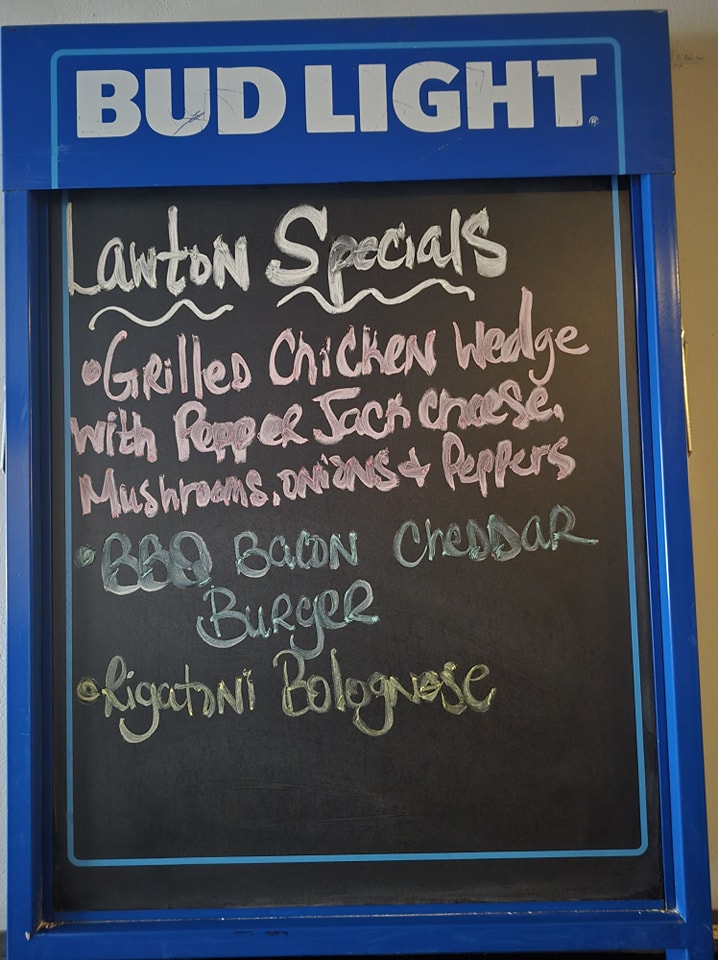 BUD LIGHT®
Lawton Specials
• Grilled Chicken Wedge
with Pepper Jack Cheese,
Mushrooms, onions & Peppers
• BBQ Bacon Cheddar
Burger
• Rigatoni Bolognose